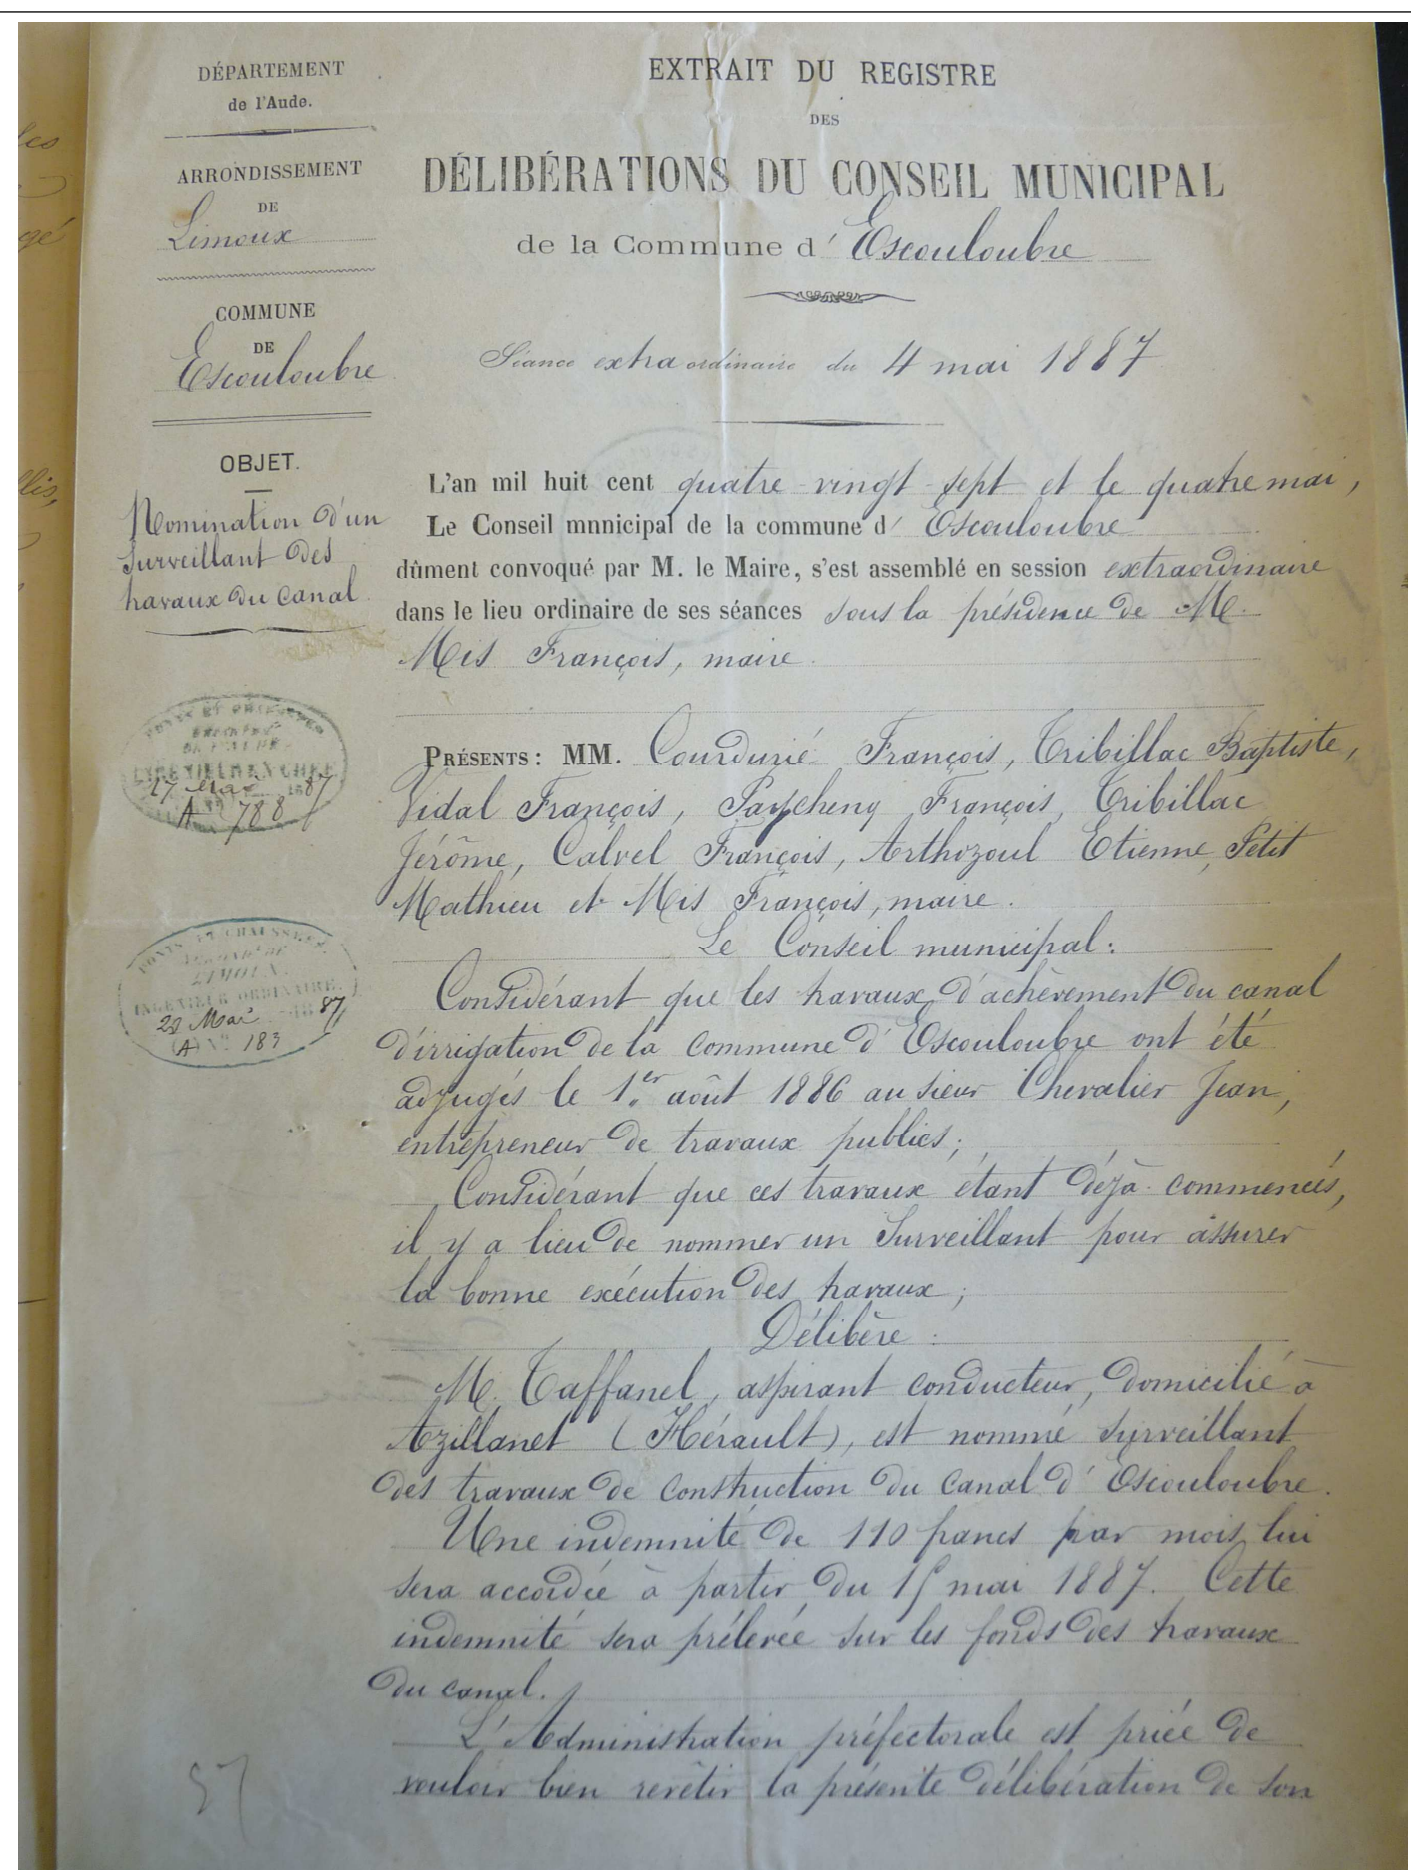 DÉPARTEMENT
de l'Aude.
ARRONDISSEMENT
DE
Limoux
COMMUNE
DE
Escouloubre
OBJET.
Nomination d'un
surveillant des
travaux du canal.
PONTS ET CHAUSSÉES
INGÉNIEUR EN CHEF
27 Mai 1887
A 788
PONTS ET CHAUSSÉES
LIMOUX
INGÉNIEUR ORDINAIRE.
28 Mai 1887
(A) N° 183
57
EXTRAIT DU REGISTRE
DES
DÉLIBÉRATIONS DU CONSEIL MUNICIPAL
de la Commune d'Escouloubre
Séance extraordinaire du 4 mai 1887
L'an mil huit cent quatre-vingt-sept et le quatre mai,
Le Conseil mnnicipal de la commune d'Escouloubre
dûment convoqué par M. le Maire, s'est assemblé en session extraordinaire
dans le lieu ordinaire de ses séances sous la présidence de M.
Mis François, maire.
PRÉSENTS: MM. Courdurié François, Tribillac Baptiste,
Vidal François, François, Tribillac
Jérôme, Calvel François, Arthozoul Etienne, Petit
Mathieu et Mis François, maire.
Le Conseil municipal:
Considérant que les travaux d'achèvement du canal
d'irrigation de la commune d'Escouloubre ont été
adjugés le 1er août 1886 au sieur Chevalier Jean,
entrepreneur de travaux publics;
Considérant que ces travaux étant déjà commencés,
il y a lieu de nommer un surveillant pour assurer
la bonne exécution des travaux;
Délibère:
M. Taffanel, aspirant conducteur, domicilié à
Azillanet (Hérault), est nommé surveillant
des travaux de construction du canal d'Escouloubre.
Une indemnité de 110 francs par mois lui
sera accordée à partir du 15 mai 1887. Cette
indemnité sera prélevée sur les fonds des travaux
du canal.
L'Administration préfectorale est priée de
vouloir bien revêtir la présente délibération de son